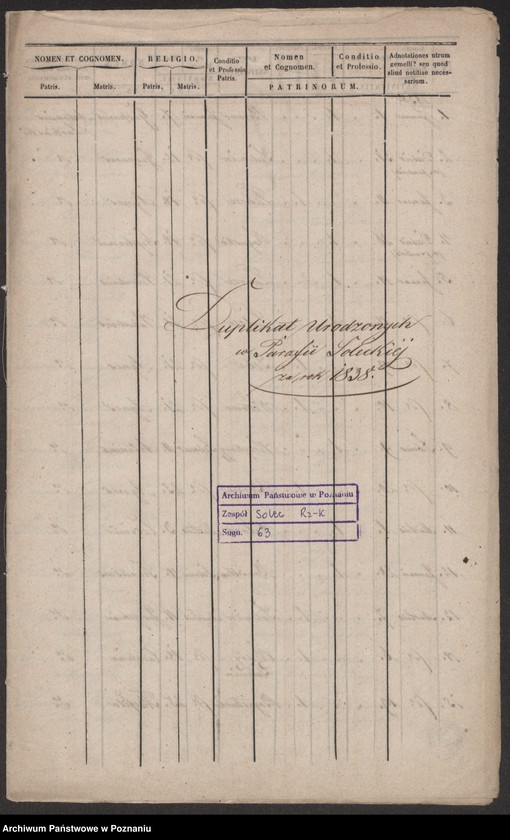 NOMEN ET COGNOMEN. RELIGIO. Conditio et Professio Patris. Nomen et Cognomen. Conditio et Professio. Adnotationes utrum gemelli? seu quod aliud notitiae necessarium.
Patris. Matris. Patris. Matris. PATRINORUM.
Duplikat Urodzonych
w Parafii Soleckiy
za rok 1838.
Archiwum Państwowe w Poznaniu
Zespół Solec Rz-K
Sygn. 63
Archiwum Państwowe w Poznaniu